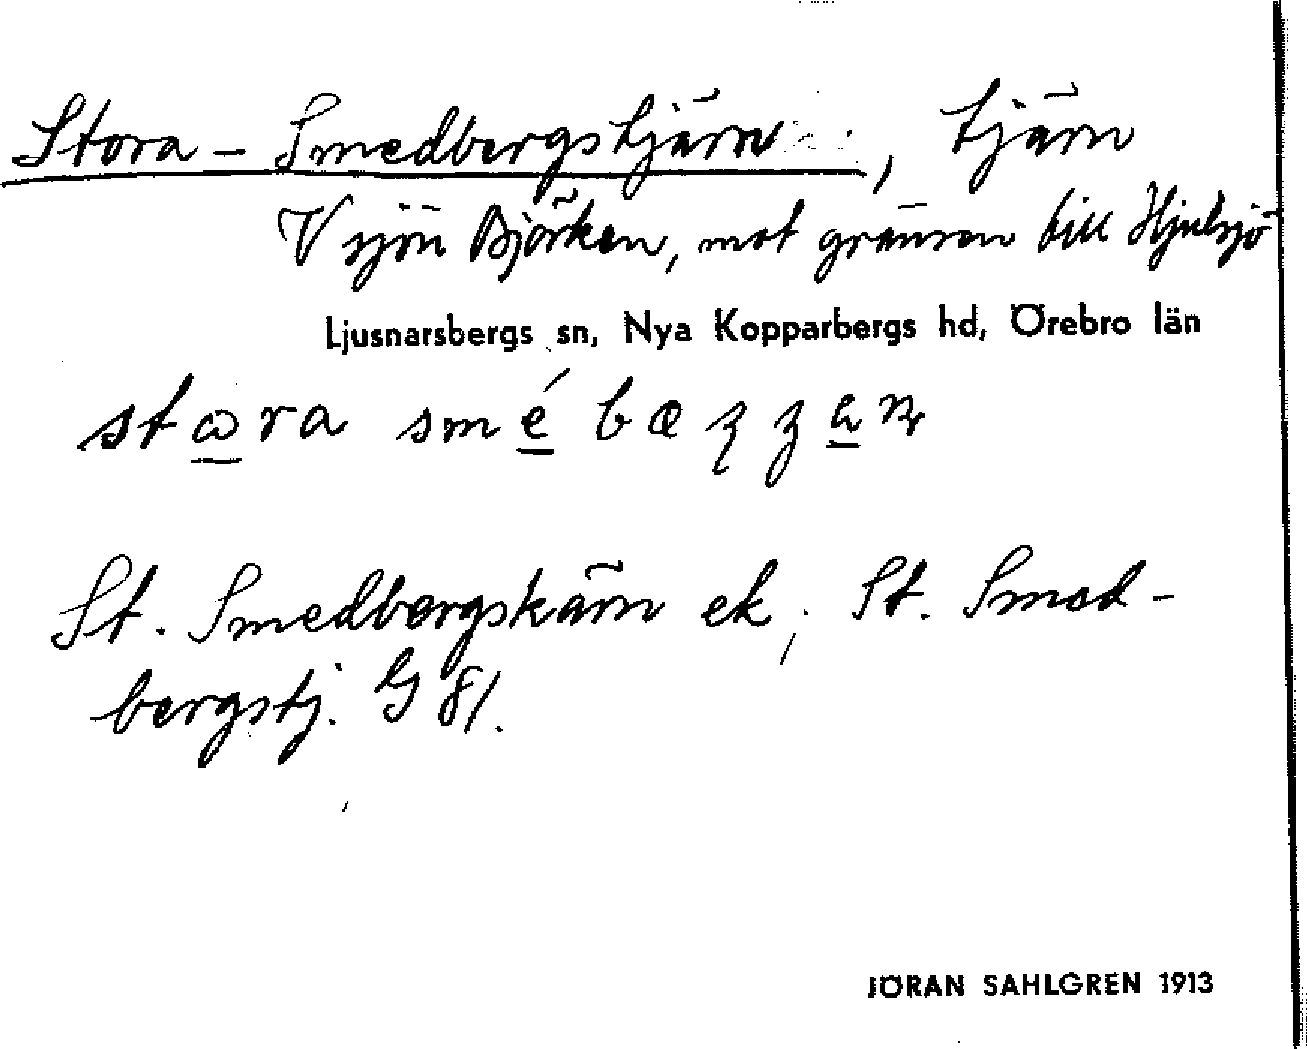 Stora-Smedbergstjärn, tjärn
V sjön Björken, mot gränsen till Hjulsjö
Ljusnarsbergs sn, Nya Kopparbergs hd, Örebro län
stωra smé bæ
St. Smedbergskärn ek; St. Smed-
bergstj. G 81.
JÖRAN SAHLGREN 1913